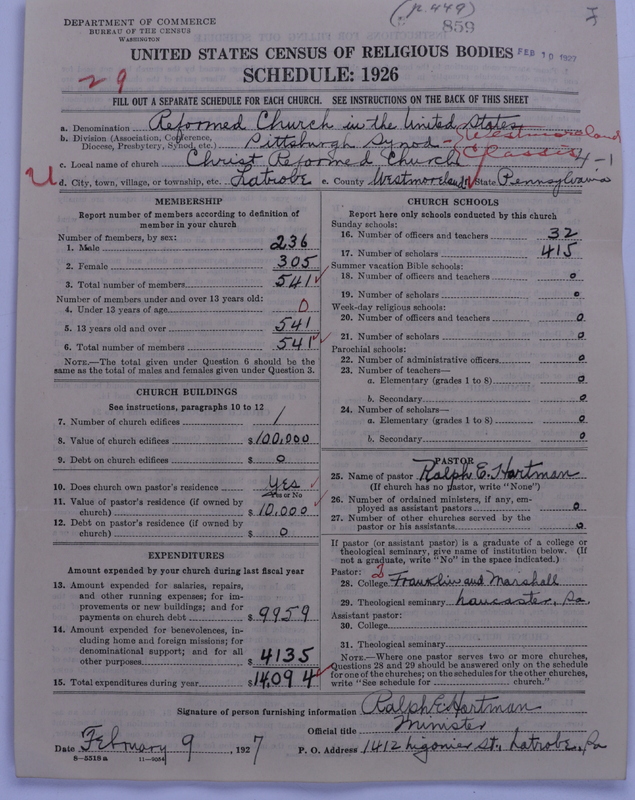 DEPARTMENT OF COMMERCE
BUREAU OF THE CENSUS
WASHINGTON
(p. 449)
859
UNITED STATES CENSUS OF RELIGIOUS BODIES FEB 10 1927
29
SCHEDULE: 1926
FILL OUT A SEPARATE SCHEDULE FOR EACH CHURCH. SEE INSTRUCTIONS ON THE BACK OF THIS SHEET
a. Denomination Reformed Church in the United States
b. Division (Association, Conference, Diocese, Presbytery, Synod, etc.) Pittsburgh Synod - Westmoreland Classis
c. Local name of church Christ Reformed Church 4-1
U d. City, town, village, or township, etc. Latrobe e. County Westmoreland State Pennsylvania
MEMBERSHIP
Report number of members according to definition of
member in your church
Number of members, by sex:
1. Male 236
2. Female 305
3. Total number of members 541
Number of members under and over 13 years old:
4. Under 13 years of age 0
5. 13 years old and over 541
6. Total number of members 541
NOTE.—The total given under Question 6 should be
same as the total of males and females given under Question 3.
CHURCH BUILDINGS
See instructions, paragraphs 10 to 12
7. Number of church edifices 1
8. Value of church edifices $100,000
9. Debt on church edifices $ 0
10. Does church own pastor's residence Yes
Yes or No
11. Value of pastor's residence (if owned by
church) $10,000
12. Debt on pastor's residence (if owned by
church) $ 0
EXPENDITURES
Amount expended by your church during last fiscal year
13. Amount expended for salaries, repairs,
and other running expenses; for im-
provements or new buildings; and for
payments on church debt $ 9959
14. Amount expended for benevolences, in-
cluding home and foreign missions; for
denominational support; and for all
other purposes $ 4135
15. Total expenditures during year $14,094
CHURCH SCHOOLS
Report here only schools conducted by this church
Sunday schools:
16. Number of officers and teachers 32
17. Number of scholars 415
Summer vacation Bible schools:
18. Number of officers and teachers 0
19. Number of scholars 0
Week-day religious schools:
20. Number of officers and teachers 0
21. Number of scholars 0
Parochial schools:
22. Number of administrative officers 0
23. Number of teachers—
a. Elementary (grades 1 to 8) 0
b. Secondary 0
24. Number of scholars—
a. Elementary (grades 1 to 8) 0
b. Secondary 0
PASTOR
25. Name of pastor Ralph E. Hartman
(If church has no pastor, write "None")
26. Number of ordained ministers, if any, em-
ployed as assistant pastors 0
27. Number of other churches served by the
pastor or his assistants 0
If pastor (or assistant pastor) is a graduate of a college or
theological seminary, give name of institution below. (If
not a graduate, write "No" in the space indicated.)
Pastor: 2
28. College Franklin and Marshall
29. Theological seminary Lancaster, Pa.
Assistant pastor:
30. College
31. Theological seminary
NOTE.—Where one pastor serves two or more churches,
Questions 28 and 29 should be answered only on the schedule
for one of the churches; on the schedules for the other churches,
write "See schedule for church."
Signature of person furnishing information Ralph E. Hartman
Official title Minister
Date February 9, 1927 P. O. Address 1412 Ligonier St., Latrobe, Pa
8-5518a 11-9084